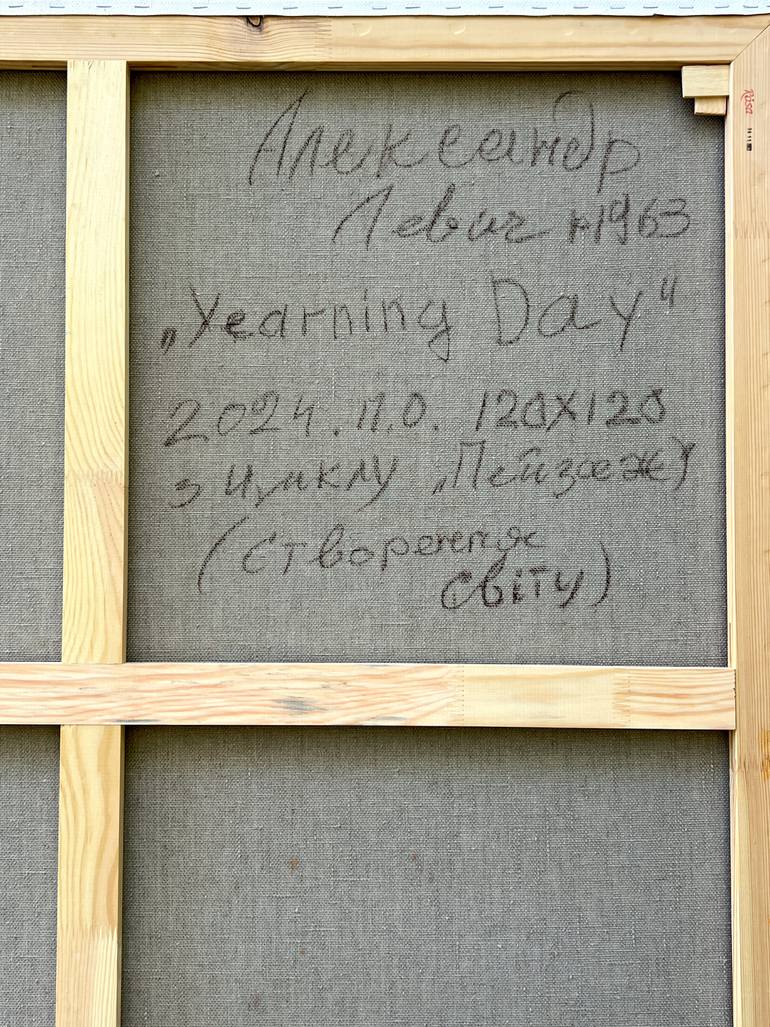 Александр
Левич н1963
„Yearning Day"
2024. П.О. 120X120
з циклу „Пейзаж"
(створення
світу)
Rosa